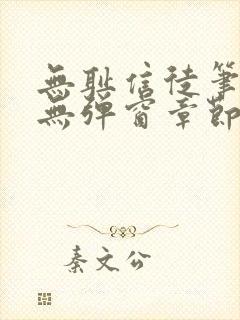 無耻信徒筆
無彈窗章節
秦文公